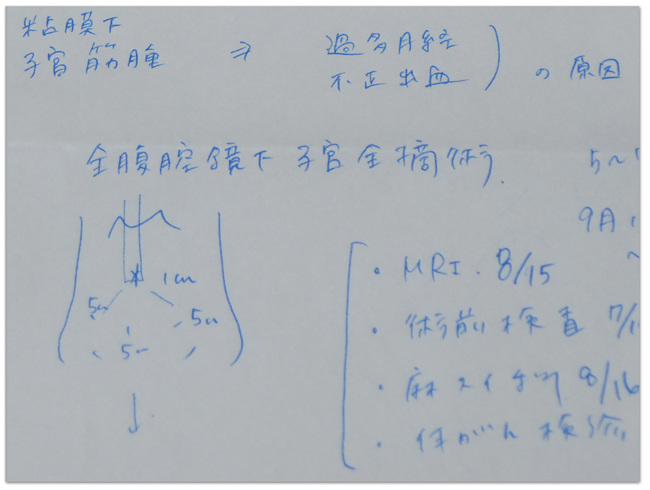 粘膜下
子宮筋腫 ⇒ 過多月経
不正出血 ) の原因
全腹腔鏡下子宮全摘術
5〜
9月
1cm
5cm 5cm
5cm
・MRI. 8/15
・術前検査 7/1
・麻スイ 8/16
・体がん検診